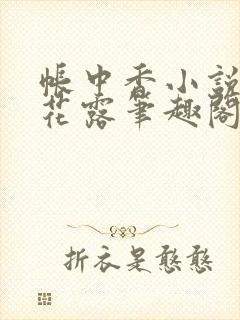 帐中香小说
花露笔趣阁
折衣是憨憨